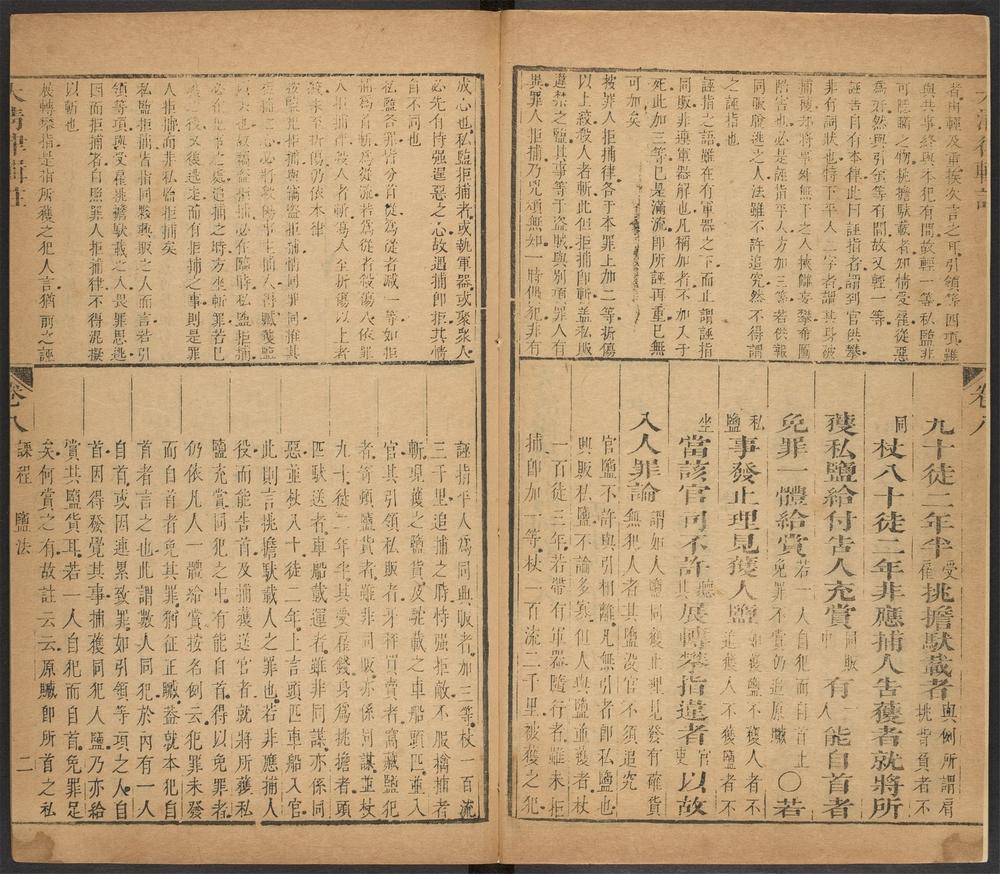 者由輕及重挨次言之耳引領等四項雖
與共事終與本犯有間故輕一等私鹽非
可隱諱之物挑擔馱載者知情受雇從惡
為非然與引領等有間故又輕一等
誣告自有本律此曰誣指者謂到官供攀
非有詞狀也特下平人二字者謂其身被
捕獲却將事外無干之人挾讐妄攀希圖
陷害也必是誣指平人方加三等若供報
同販脫逃之人法雖不許追究然不得謂
之誣指也
誣指之語雖在有軍器之下而止謂誣指
同販非連軍器解也凡稱加者不加入于
死此加三等已是滿流即所誣再重已無
可加矣
按罪人拒捕律各于本罪上加二等折傷
以上絞殺人者斬此但拒捕即斬蓋私販
違禁之鹽其事等于盜賊與別項罪人有
異罪人拒捕乃兇頑無知一時偶犯非有
九十徒二年半受雇挑擔馱載者與例所謂肩挑背負者不
同杖八十徒二年非應捕人告獲者就將所
獲私鹽給付告人充賞同販中有一人能自首者
免罪一體給賞若一人自犯而自首止免罪不賞仍追原贓○若
私鹽事發止理見獲人鹽如獲鹽不獲人者不追獲人不獲鹽者不
坐當該官司不許聽其展轉攀指違者官吏以故
入人罪論謂如人鹽同獲止理見發有確貨無犯人者其鹽沒官不須追究
官鹽不許與引相離凡無引者即私鹽也
興販私鹽不論多寡但人與鹽並獲者杖
一百徒三年若帶有軍器隨行者雖未拒
捕即加一等杖一百流二千里被獲之犯
成心也私鹽拒捕者或執軍器或聚衆人
必先有恃强逞惡之心故遇捕即拒其情
自不同也
私鹽各罪皆分首從為從者減一等如拒
捕為首斬為從流若為從者役傷人依罪
人拒捕殺人者斬為人至折傷以上者
絞未至折傷仍依本律
人拒捕而非私鹽拒捕矣
私鹽拒捕皆指同夥興販之人而言若引
領等項與受雇挑擔馱載之人畏罪思逃
因而拒捕者自照罪人拒捕律不得混擬
以斬也
展轉攀指是指所獲之犯人言猶前之誣
大清律輯註
誣指平人為同興販者加三等杖一百流
三千里追捕之時恃强拒敵不服擒捕者
斬現獲之鹽貨及馱載之車船頭匹並入
官其引領私販者牙秤買賣者窩藏鹽犯
者寄頓鹽貨者雖非同販亦係同謀並杖
九十徒二年半其受雇錢身為挑擔者頭
匹馱送者車船載運者雖非同謀亦係同
惡並杖八十徒二年上言頭匹車船入官
此則言挑擔馱載人之罪也若非應捕人
役而能告首及捕獲送官者就將所獲私
鹽充賞同犯之中有能自首者得以免罪
仍依凡人一體給賞按名例云犯罪未發
而自首者免其罪猶征正贓葢就本犯自
首者言之也此謂數人同犯於內有一人
自首或因連累致罪如引領等項之人自
首因得發覺其事捕獲同犯人鹽乃亦給
賞其鹽貨耳若一人自犯而自首免罪足
矣何賞之有故註云云原贓即所首之私
卷八
課程　鹽法
二